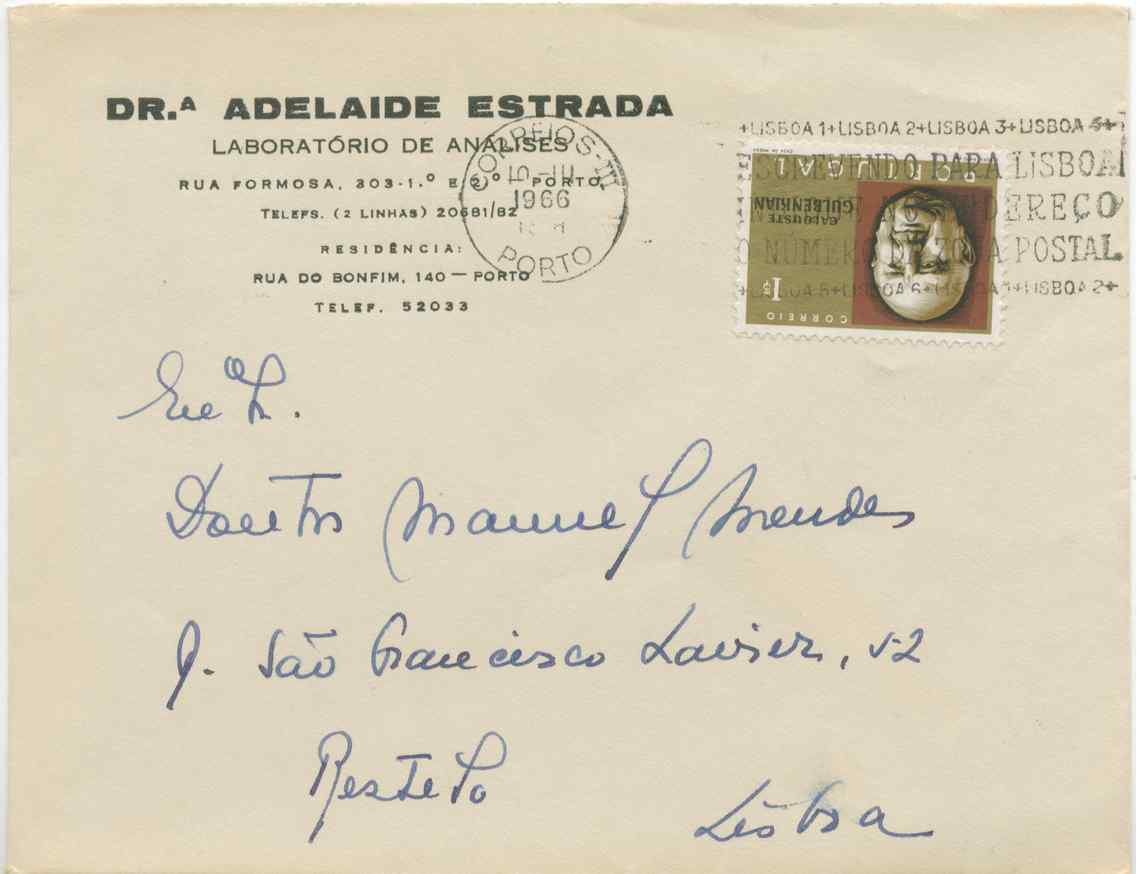 DR.ª ADELAIDE ESTRADA
LABORATÓRIO DE ANÁLISES
RUA FORMOSA, 303-1.º E 2.º PORTO
TELEFS. (2 LINHAS) 20681/82
RESIDÊNCIA:
RUA DO BONFIM, 140 — PORTO
TELEF. 52033
CORREIOS
1966
PORTO
+LISBOA 1+LISBOA 2+LISBOA 3+LISBOA
ESCREVENDO PARA LISBOA
ENDEREÇO
O NÚMERO DE ZONA POSTAL
+LISBOA 5+LISBOA 6+LISBOA 1+LISBOA 2+
PORTUGAL
CALOUSTE
GULBENKIAN
1$
CORREIO
Doutor Manuel Mendes
R. São Francisco Xavier, 52
Restelo
Lisboa